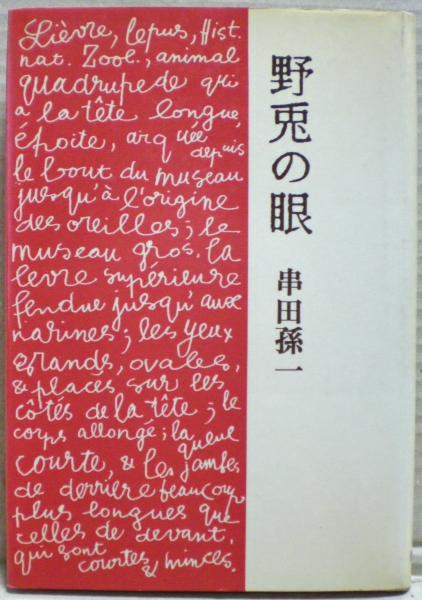 Lièvre, lepus, Hist.
nat. Zool., animal
quadrupede qui
a la tête longue,
époite, arquée depuis
le bout du museau
jusqu'à l'origine
des oreilles; le
museau gros, la
levre supérieure
fendue jusqu'aux
narines; les yeux
grands, ovales,
& placés sur les
côtés de la tête; le
corps allongé; la queue
courte, & les jambes
de derriere beaucoup
plus longues que
celles de devant,
qui sont courtes & minces.
野兎の眼
串田孫一